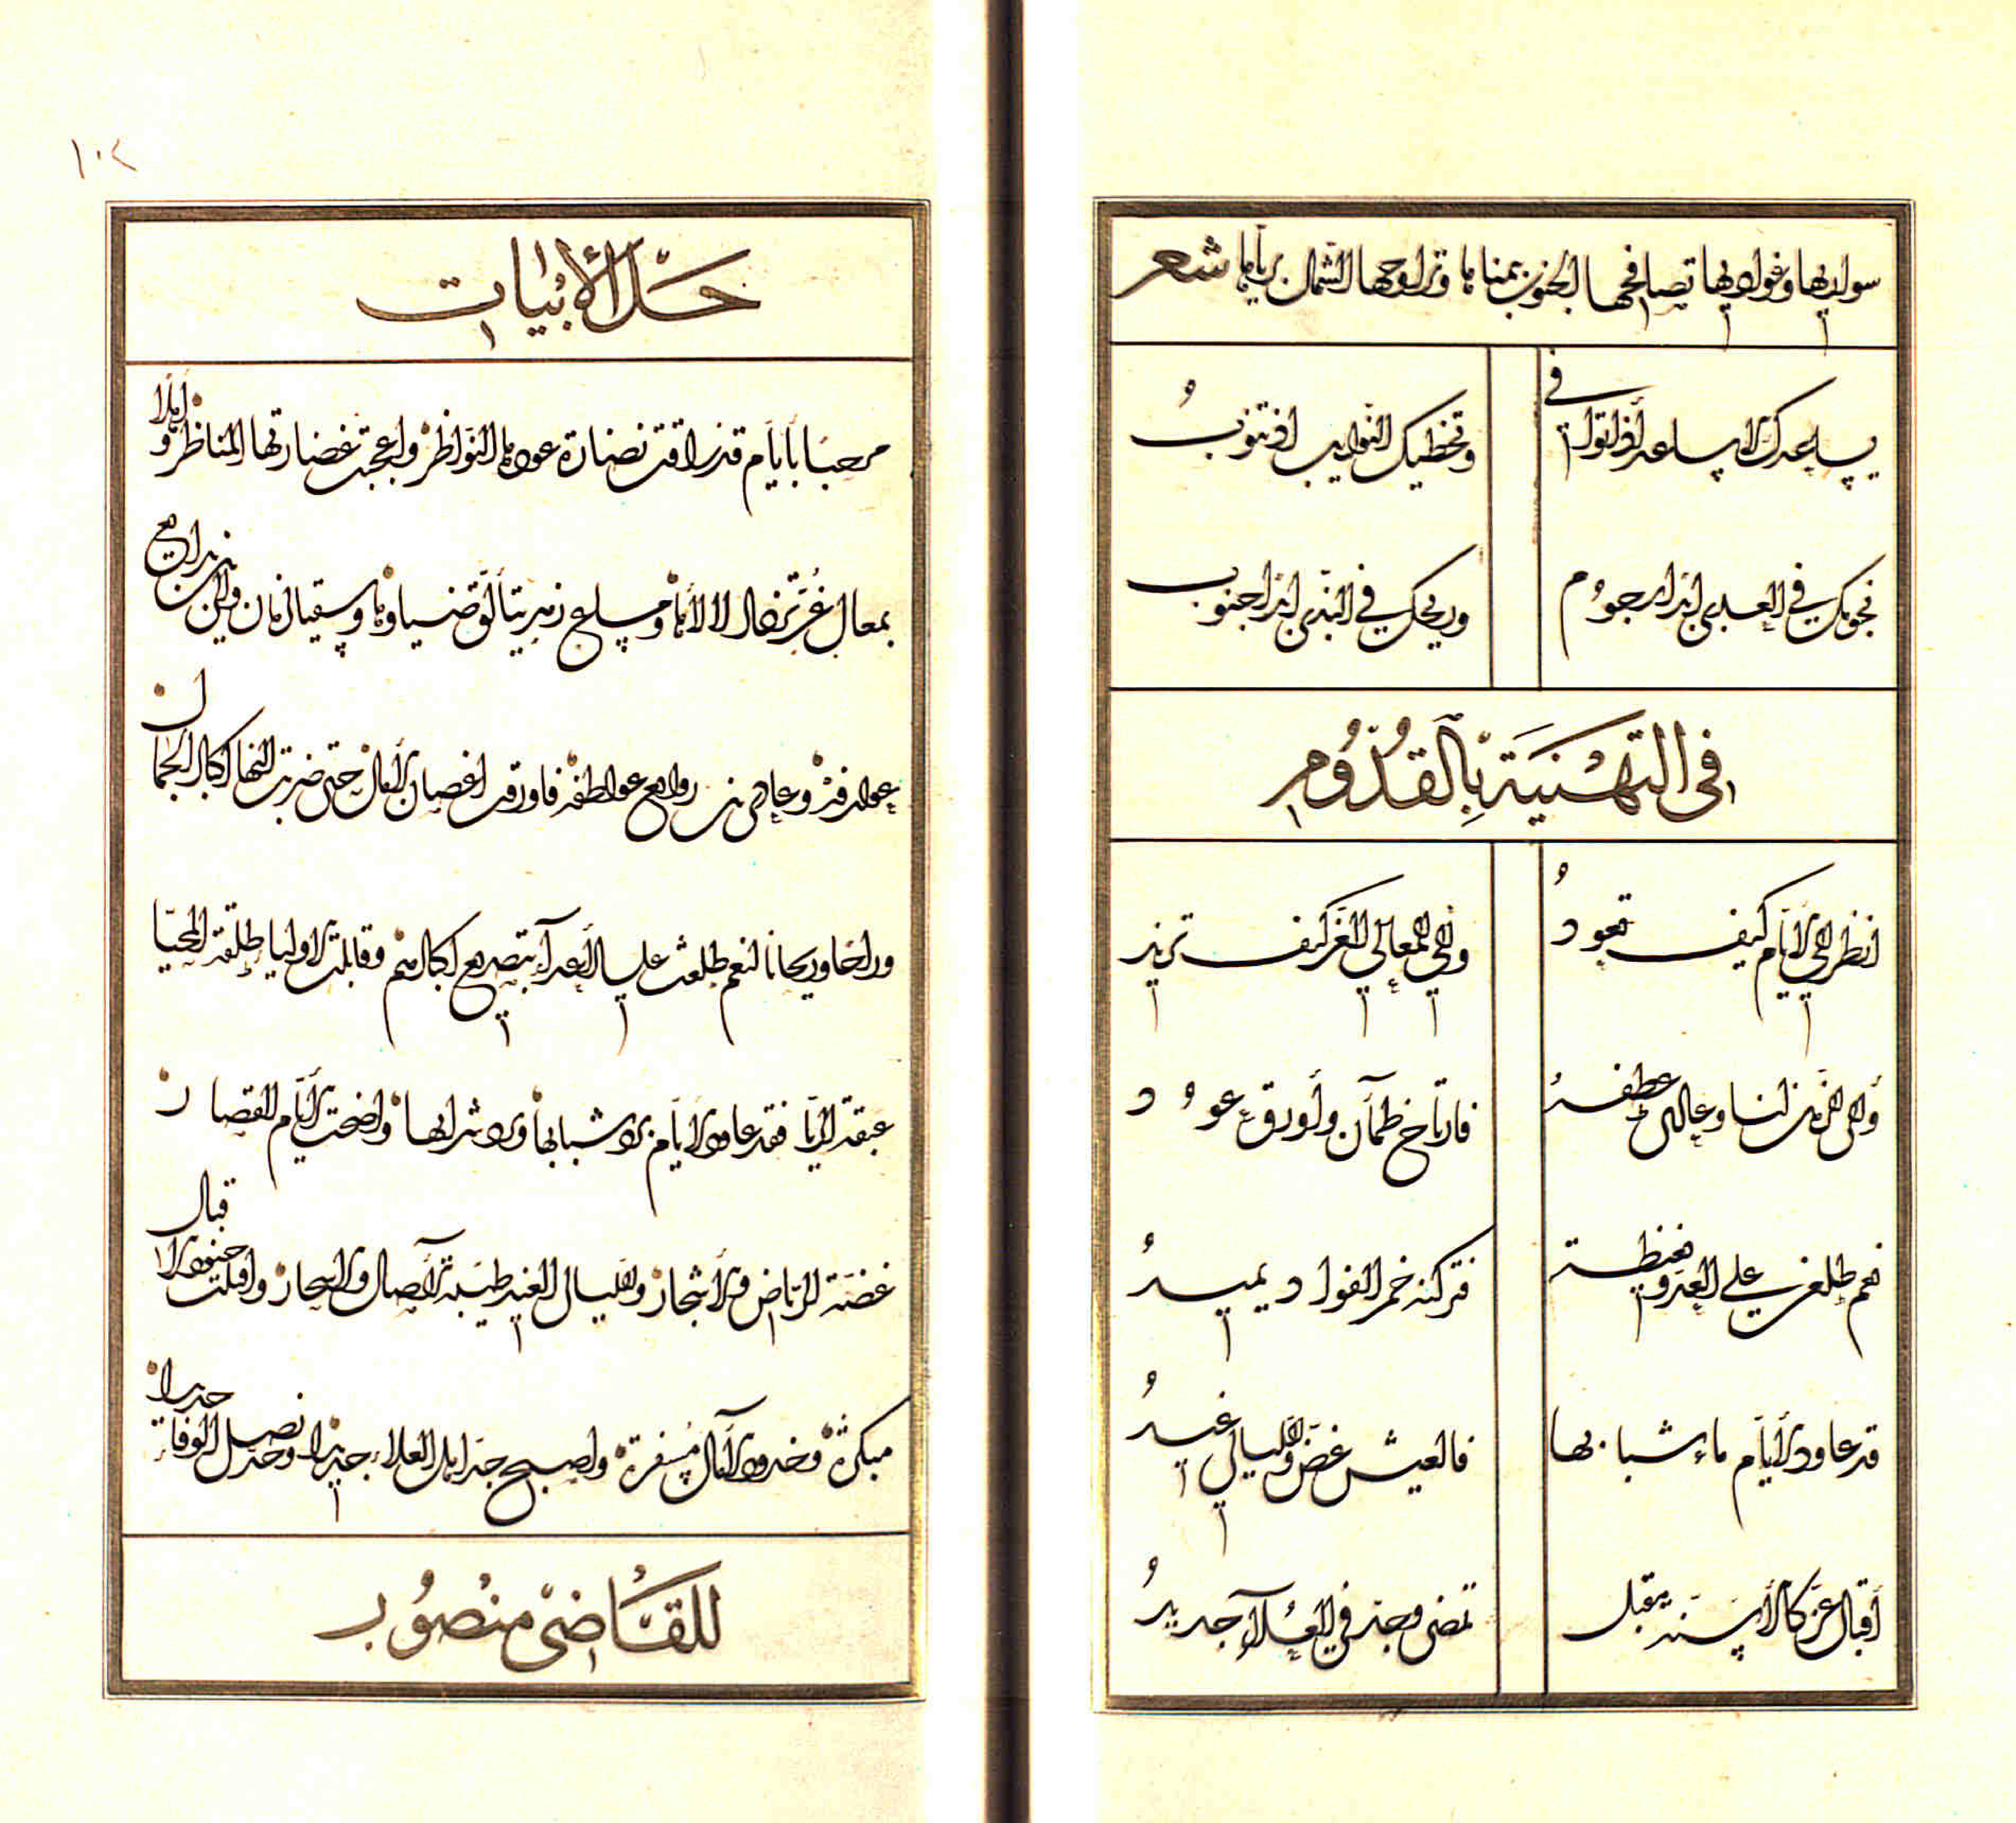 سواريها وغواديها تصافحها الجنوب بيمناها وتراوحها الشمال برياها شعر
يساعدك المساعد اذ تواافي وتخطيك النوايب اذ تنوب
نجومك في العلى ابدا رجوم وريحك في الندى ابدا جنوب
في التهنية بالقدوم
انظر الى الايام كيف تعود والى المعالي الغر كيف تزيد
وافى الزمان لنا وعاد عطفه فارتاح ظمآن وأورق عود
نعم طلعن على العدو بغيظه فتركنه خمر الفواد يميد
قد عاود الأيام ماء شبابها فالعيش غض والليالي غيد
أقبال عز كالأسنة مقبل تمضى وجد في العلآء جديد
١٠٢
حل الأبيات
مرحبا بأيام قد راقت نضارة عودها النواظر وأعجبت غضارتها المناظر واهلا
بمعال غر تزهار لالاؤها ومساع زهر يتألق ضياوها وسقيا لزمان وافى من بدايع
عوارفه وعاد من روايع عواطفه فاورقت اغصان الامال حتى ضربت النها اكبال الجمان
وراحا وريحانا لنعم طلعت على الأعدآء بتصديع اكبادهم وقابلت الاوليا طلقة المحيا
عبقة الريا فقد عاود الايام برد شبابها وبرد شرابها واضحت الأيام القصار
غضة الرياض والأشجار والليالي الغيد طيبة الآصال والاسحار واقبلت جنود الاقبال
مبكرة وخدود الآمال مسفرة واصبح جد اهل العلاء جديدا وحد نصل الوفاء حديدا
للقاضى منصور